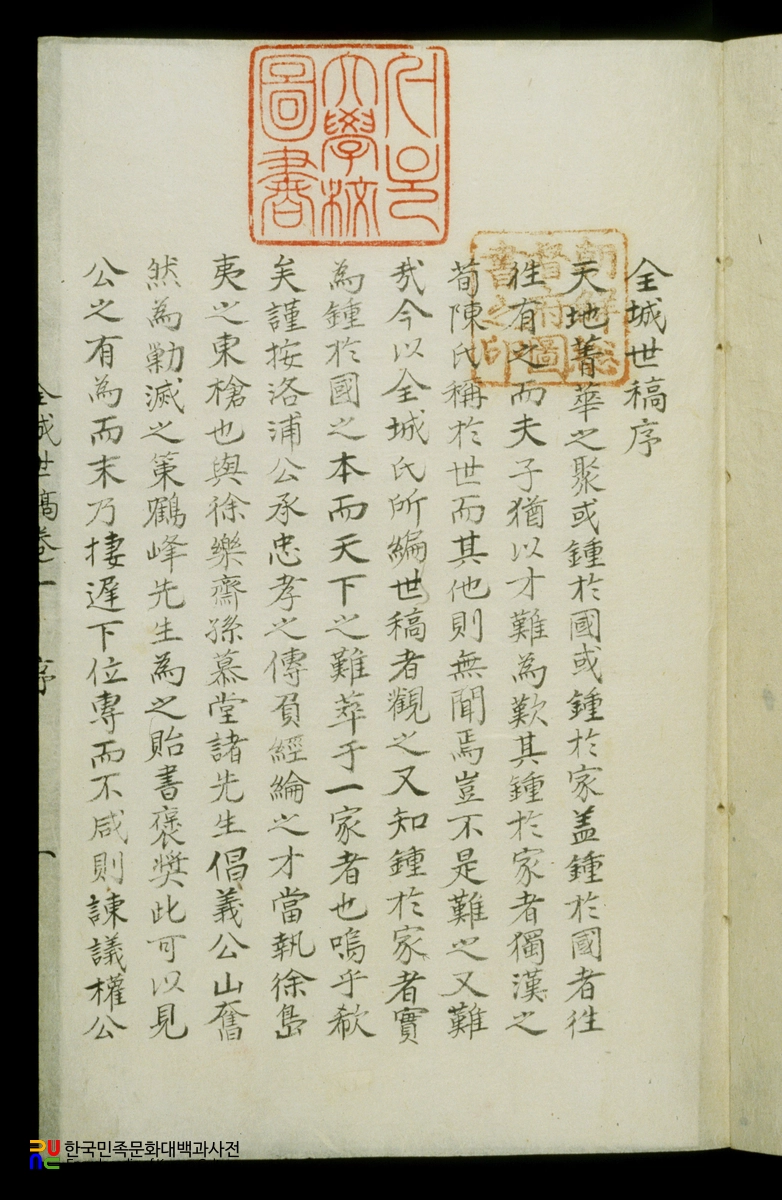 全城世稿序
天地菁華之聚或鍾於國或鍾於家盖鍾於國者徃
徃有之而夫子猶以才難為歎其鍾於家者獨漢之
荀陳氏稱於世而其他則無聞焉豈不是難之又難
㢤今以全城氏所編世稿者觀之又知鍾於家者實
為鍾於國之本而天下之難萃于一家者也嗚乎欷
矣謹按洛浦公承忠孝之傳負經綸之才當執徐島
夷之東槍也與徐樂齋孫慕堂諸先生倡義公山奮
然為勦滅之策鶴峰先生為之貽書褒奬此可以見
公之有為而末乃捿遲下位專而不咸則諫議權公
全城世稿卷一 序 一
大學校
圖書
朝鮮總
督府圖
書之印
한국민족문화대백과사전